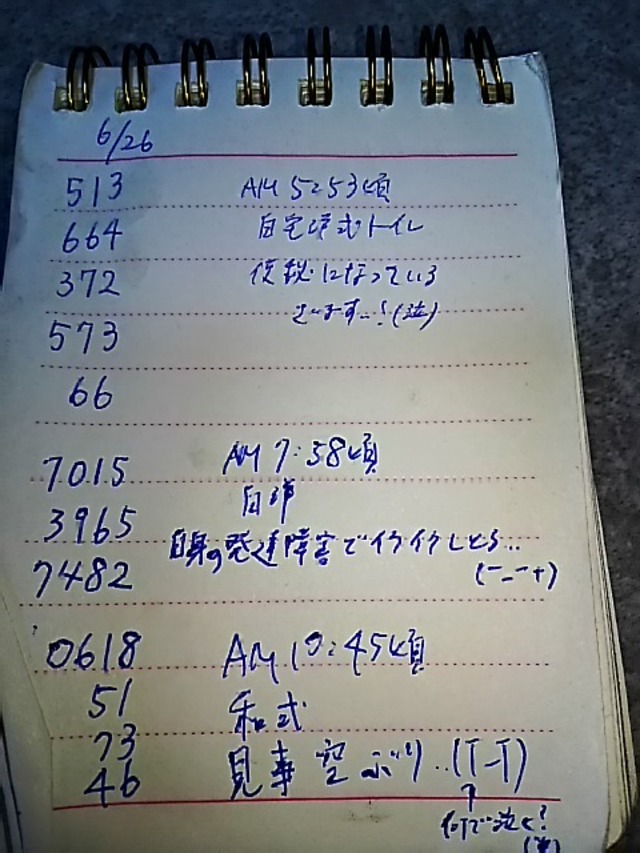 6/26
513 AM 5:53頃
664 自宅洋式トイレ
372 便秘になっている
573 ...!(泣)
66
7015 AM 7:58頃
3965 自洋
自身の発達障害でイライラしとる...
7482 (ーーナ)
0618 AM 10:45頃
51 和式
73
46 見事空ぶり..(T-T)
何で泣く?